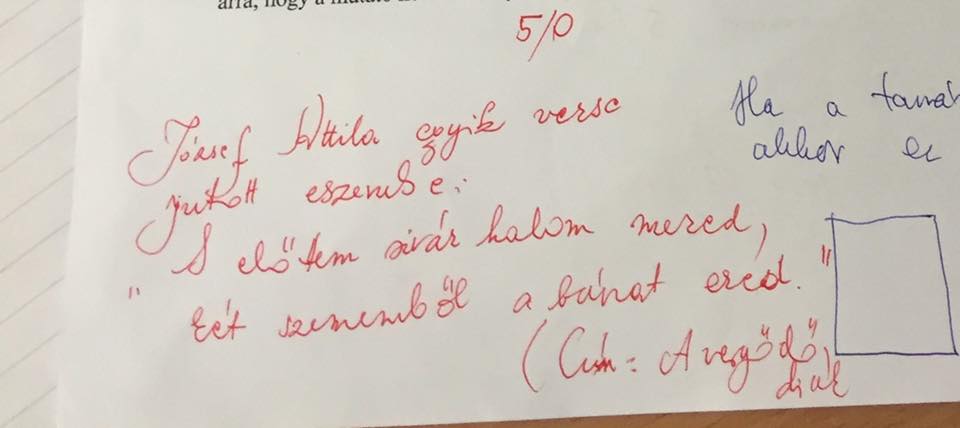 arra, hogy a mutató
5/0
József Attila egyik verse
jutott eszembe:
Ha a tanár
akkor ez
" S előttem sivár halom mered,
Két szememből a bánat ered."
(Cím: A vergődő
diák